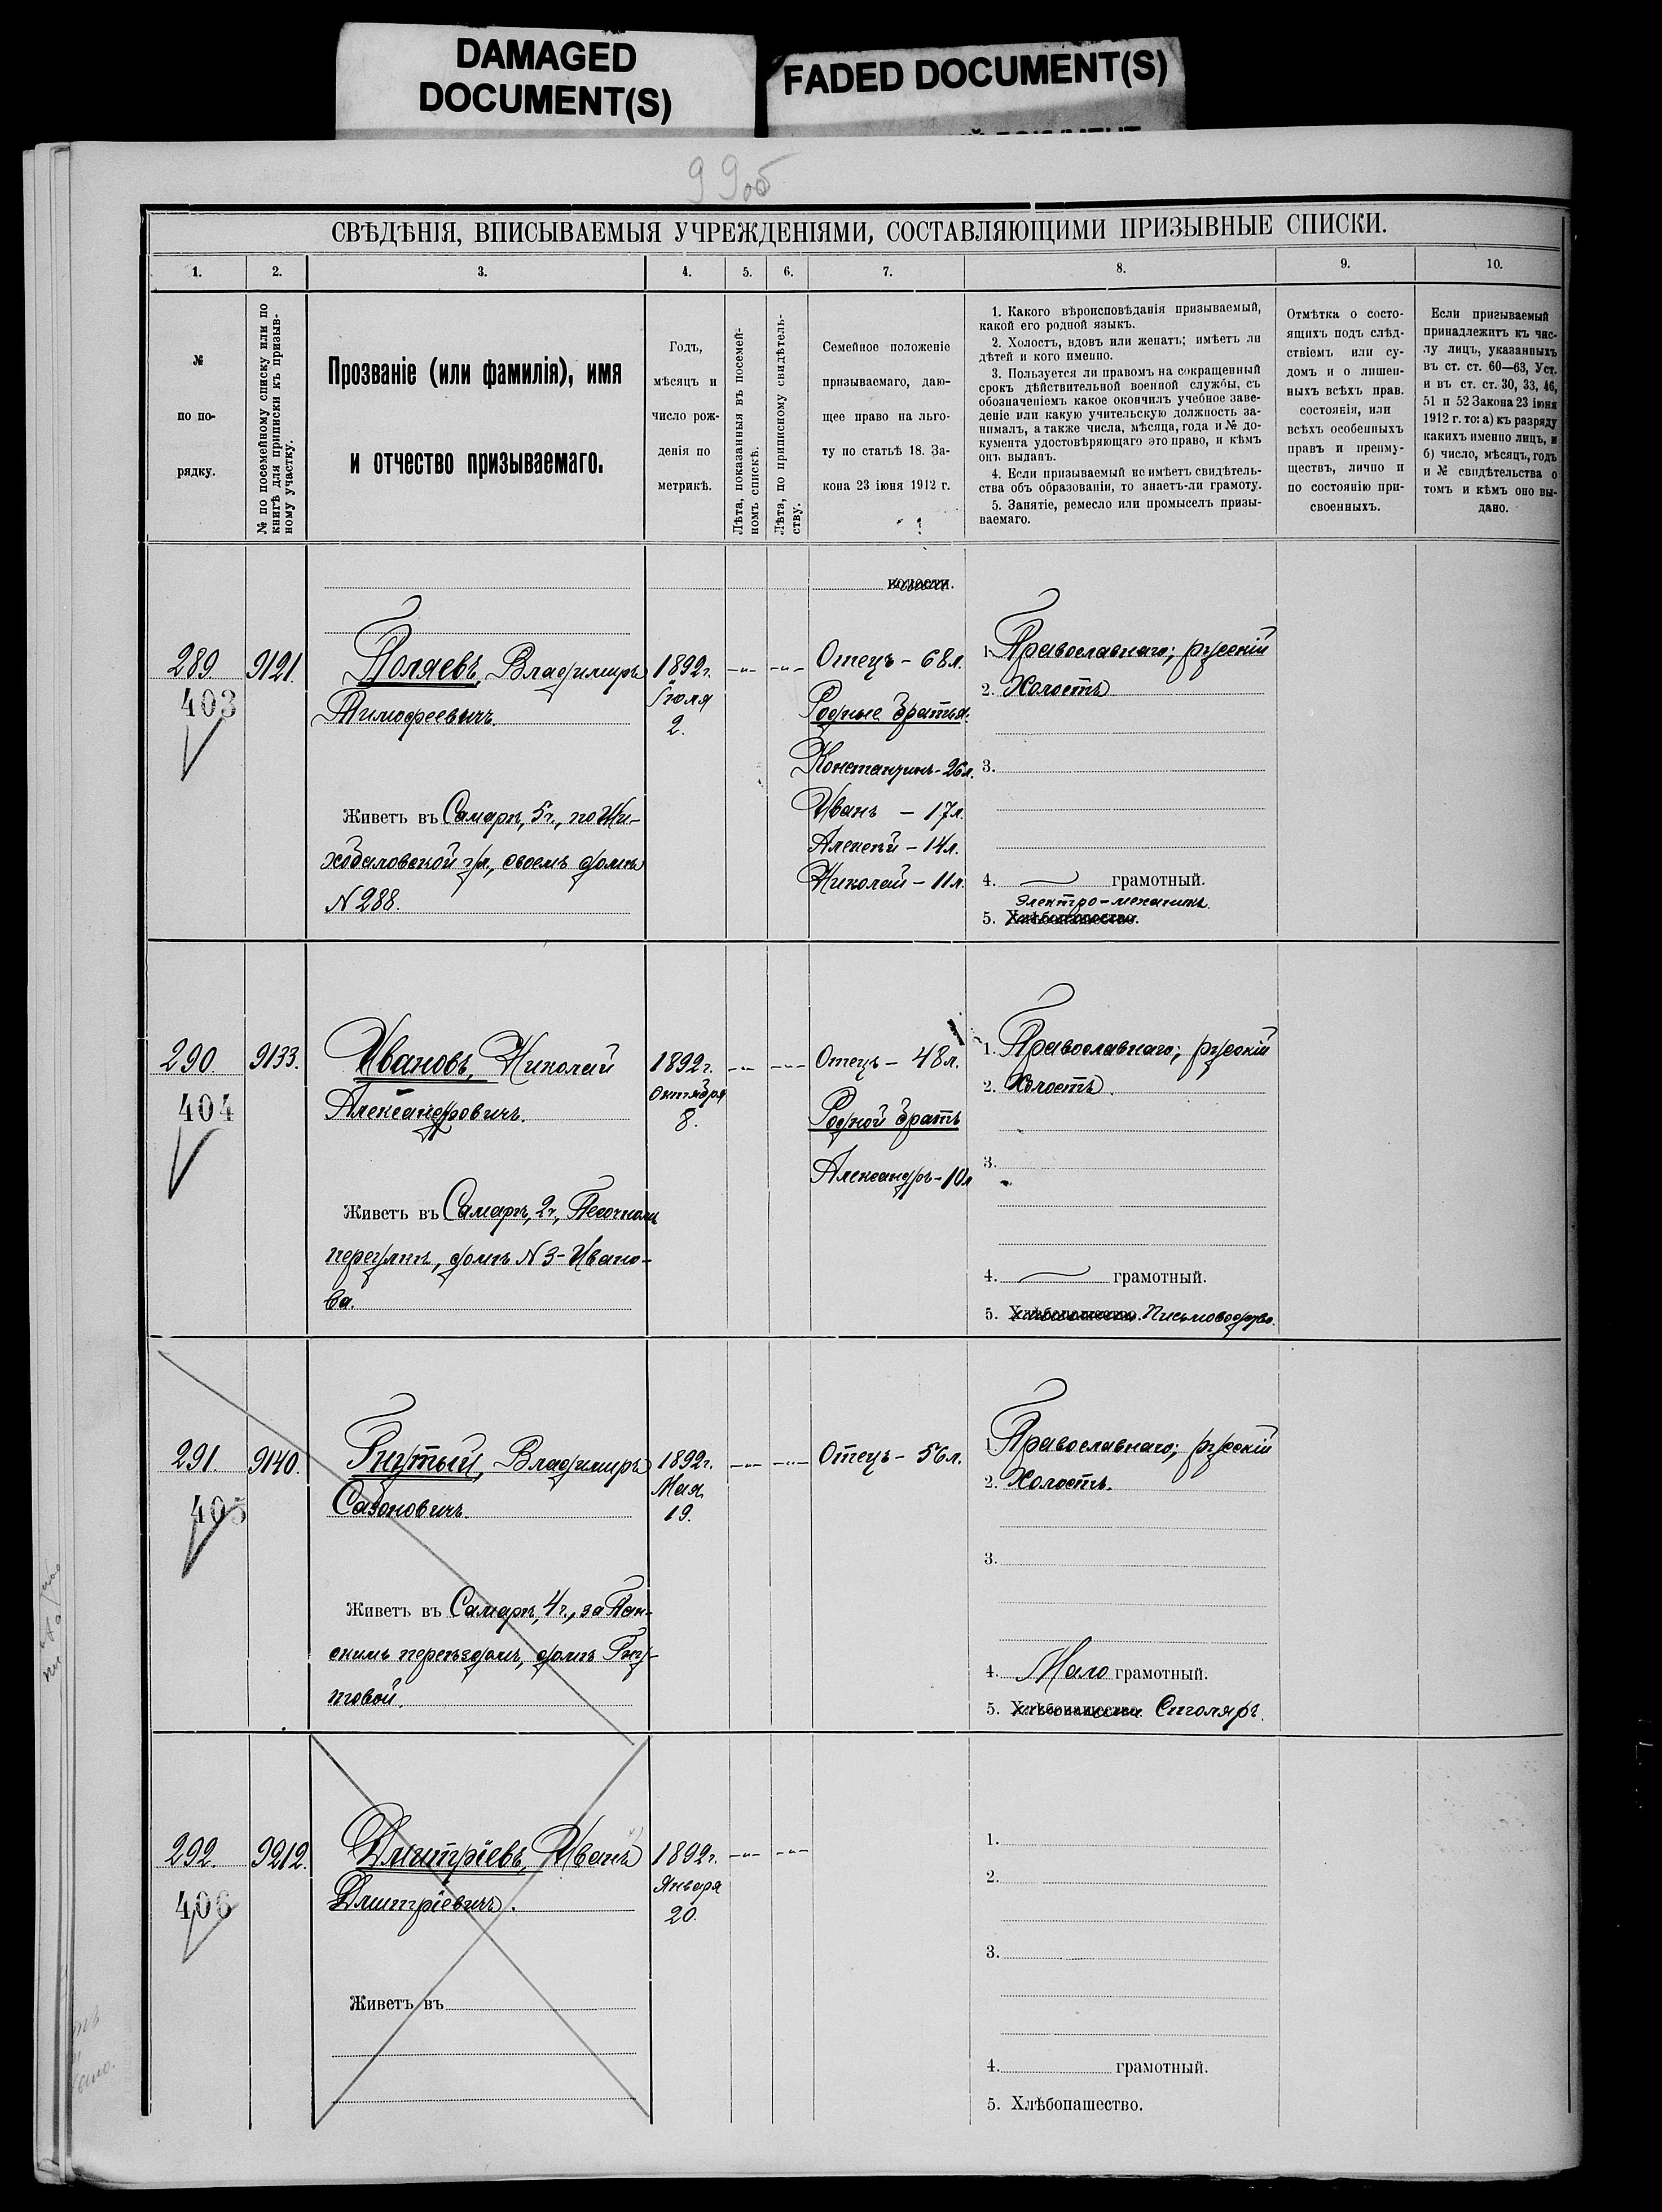 DAMAGED
DOCUMENT(S)
FADED DOCUMENT(S)
99об
СВѢДѢНІЯ, ВПИСЫВАЕМЫЯ УЧРЕЖДЕНІЯМИ, СОСТАВЛЯЮЩИМИ ПРИЗЫВНЫЕ СПИСКИ.
1.
2.
3.
4.
5.
6.
7.
8.
9.
10.
№
по по-
рядку.
№ по посемейному списку или по
книгѣ для приписки къ призыв-
ному участку.
Прозваніе (или фамилія), имя
и отчество призываемаго.
Годъ,
мѣсяцъ и
число рож-
денія по
метрикѣ.
Лѣта, показанныя въ посемей-
номъ спискѣ.
Лѣта, по приписному свидѣтель-
ству.
Семейное положеніе
призываемаго, даю-
щее право на льго-
ту по статьѣ 18. За-
кона 23 іюня 1912 г.
1. Какого вѣроисповѣданія призываемый,
какой его родной языкъ.
2. Холостъ, вдовъ или женатъ; имѣетъ ли
дѣтей и кого именно.
3. Пользуется ли правомъ на сокращенный
срокъ дѣйствительной военной службы, съ
обозначеніемъ какое окончилъ учебное заве-
деніе или какую учительскую должность за-
нималъ, а также числа, мѣсяца, года и № до-
кумента удостовѣряющаго это право, и кѣмъ
онъ выданъ.
4. Если призываемый не имѣетъ свидѣтель-
ства объ образованіи, то знаетъ-ли грамоту.
5. Занятіе, ремесло или промыселъ призы-
ваемаго.
Отмѣтка о состо-
ящихъ подъ слѣд-
ствіемъ или су-
домъ и о лишен-
ныхъ всѣхъ прав.
состоянія, или
всѣхъ особенныхъ
правъ и преиму-
ществъ, лично и
по состоянію при-
своенныхъ.
Если призываемый
принадлежитъ къ чис-
лу лицъ, указанныхъ
въ ст. ст. 60—63, Уст.
и въ ст. ст. 30, 33, 46,
51 и 52 Закона 23 іюня
1912 г. то: а) къ разряду
какихъ именно лицъ, и
б) число, мѣсяцъ, годъ
и № свидѣтельства о
томъ и кѣмъ оно вы-
дано.
волости.
289.
403
9121.
Поляевъ, Владимиръ
Тимофеевичъ.
Живетъ въ Самарѣ, 5ч., по Ни-
№ 288.
1892г.
Іюля
2.
Отецъ - 68л.
Родные братья:
Константинъ - 26л.
Иванъ - 17л.
Алексѣй - 14л.
Николай - 11л.
1. Православнаго; русскій
2. Холостъ
3.
4. грамотный.
Электро-механикъ.
5. Хлѣбопашество.
290
404
9133.
Ивановъ, Николай
Александровичъ.
Живетъ въ Самарѣ, 2ч., Песочномъ
переулкѣ, домъ № 3 - Ивано-
ва.
1892г.
Октября
8.
Отецъ - 48л.
Родной братъ
Александръ - 10л
1. Православнаго; русскій
2. Холостъ.
3.
4. грамотный.
5. Хлѣбопашество. Письмоводство.
291.
405
9140.
Гнутый, Владимиръ
Сазоновичъ.
Живетъ въ Самарѣ, 4ч., за Пан-
скимъ переѣздомъ, домъ Гну-
товой.
1892г.
Мая
19.
Отецъ - 56л.
1. Православнаго; русскій
2. Холостъ.
3.
4. Мало грамотный.
5. Хлѣбопашество. Столяръ.
292.
406
9212.
Дмитріевъ, Иванъ
Дмитріевичъ.
Живетъ въ
1892г.
Января
20.
1.
2.
3.
4. грамотный.
5. Хлѣбопашество.